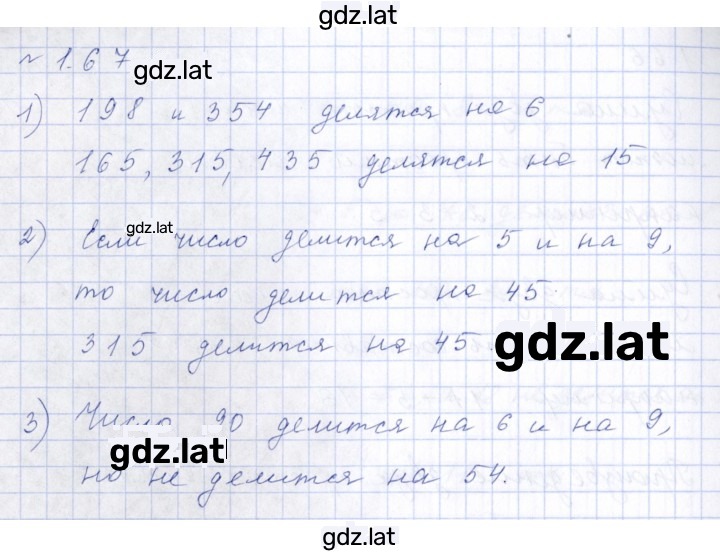 gdz.lat
№ 1.67
gdz.lat
1) 198 и 354 делятся на 6
165, 315, 435 делятся на 15
gdz.lat
2) Если число делится на 5 и на 9,
то число делится на 45.
315 делится на 45
gdz.lat
3) Число 90 делится на 6 и на 9,
gdz.lat
но не делится на 54.
gdz.lat